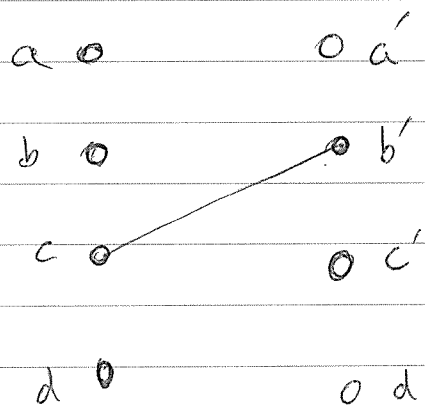 a a′
b b′
c c′
d d